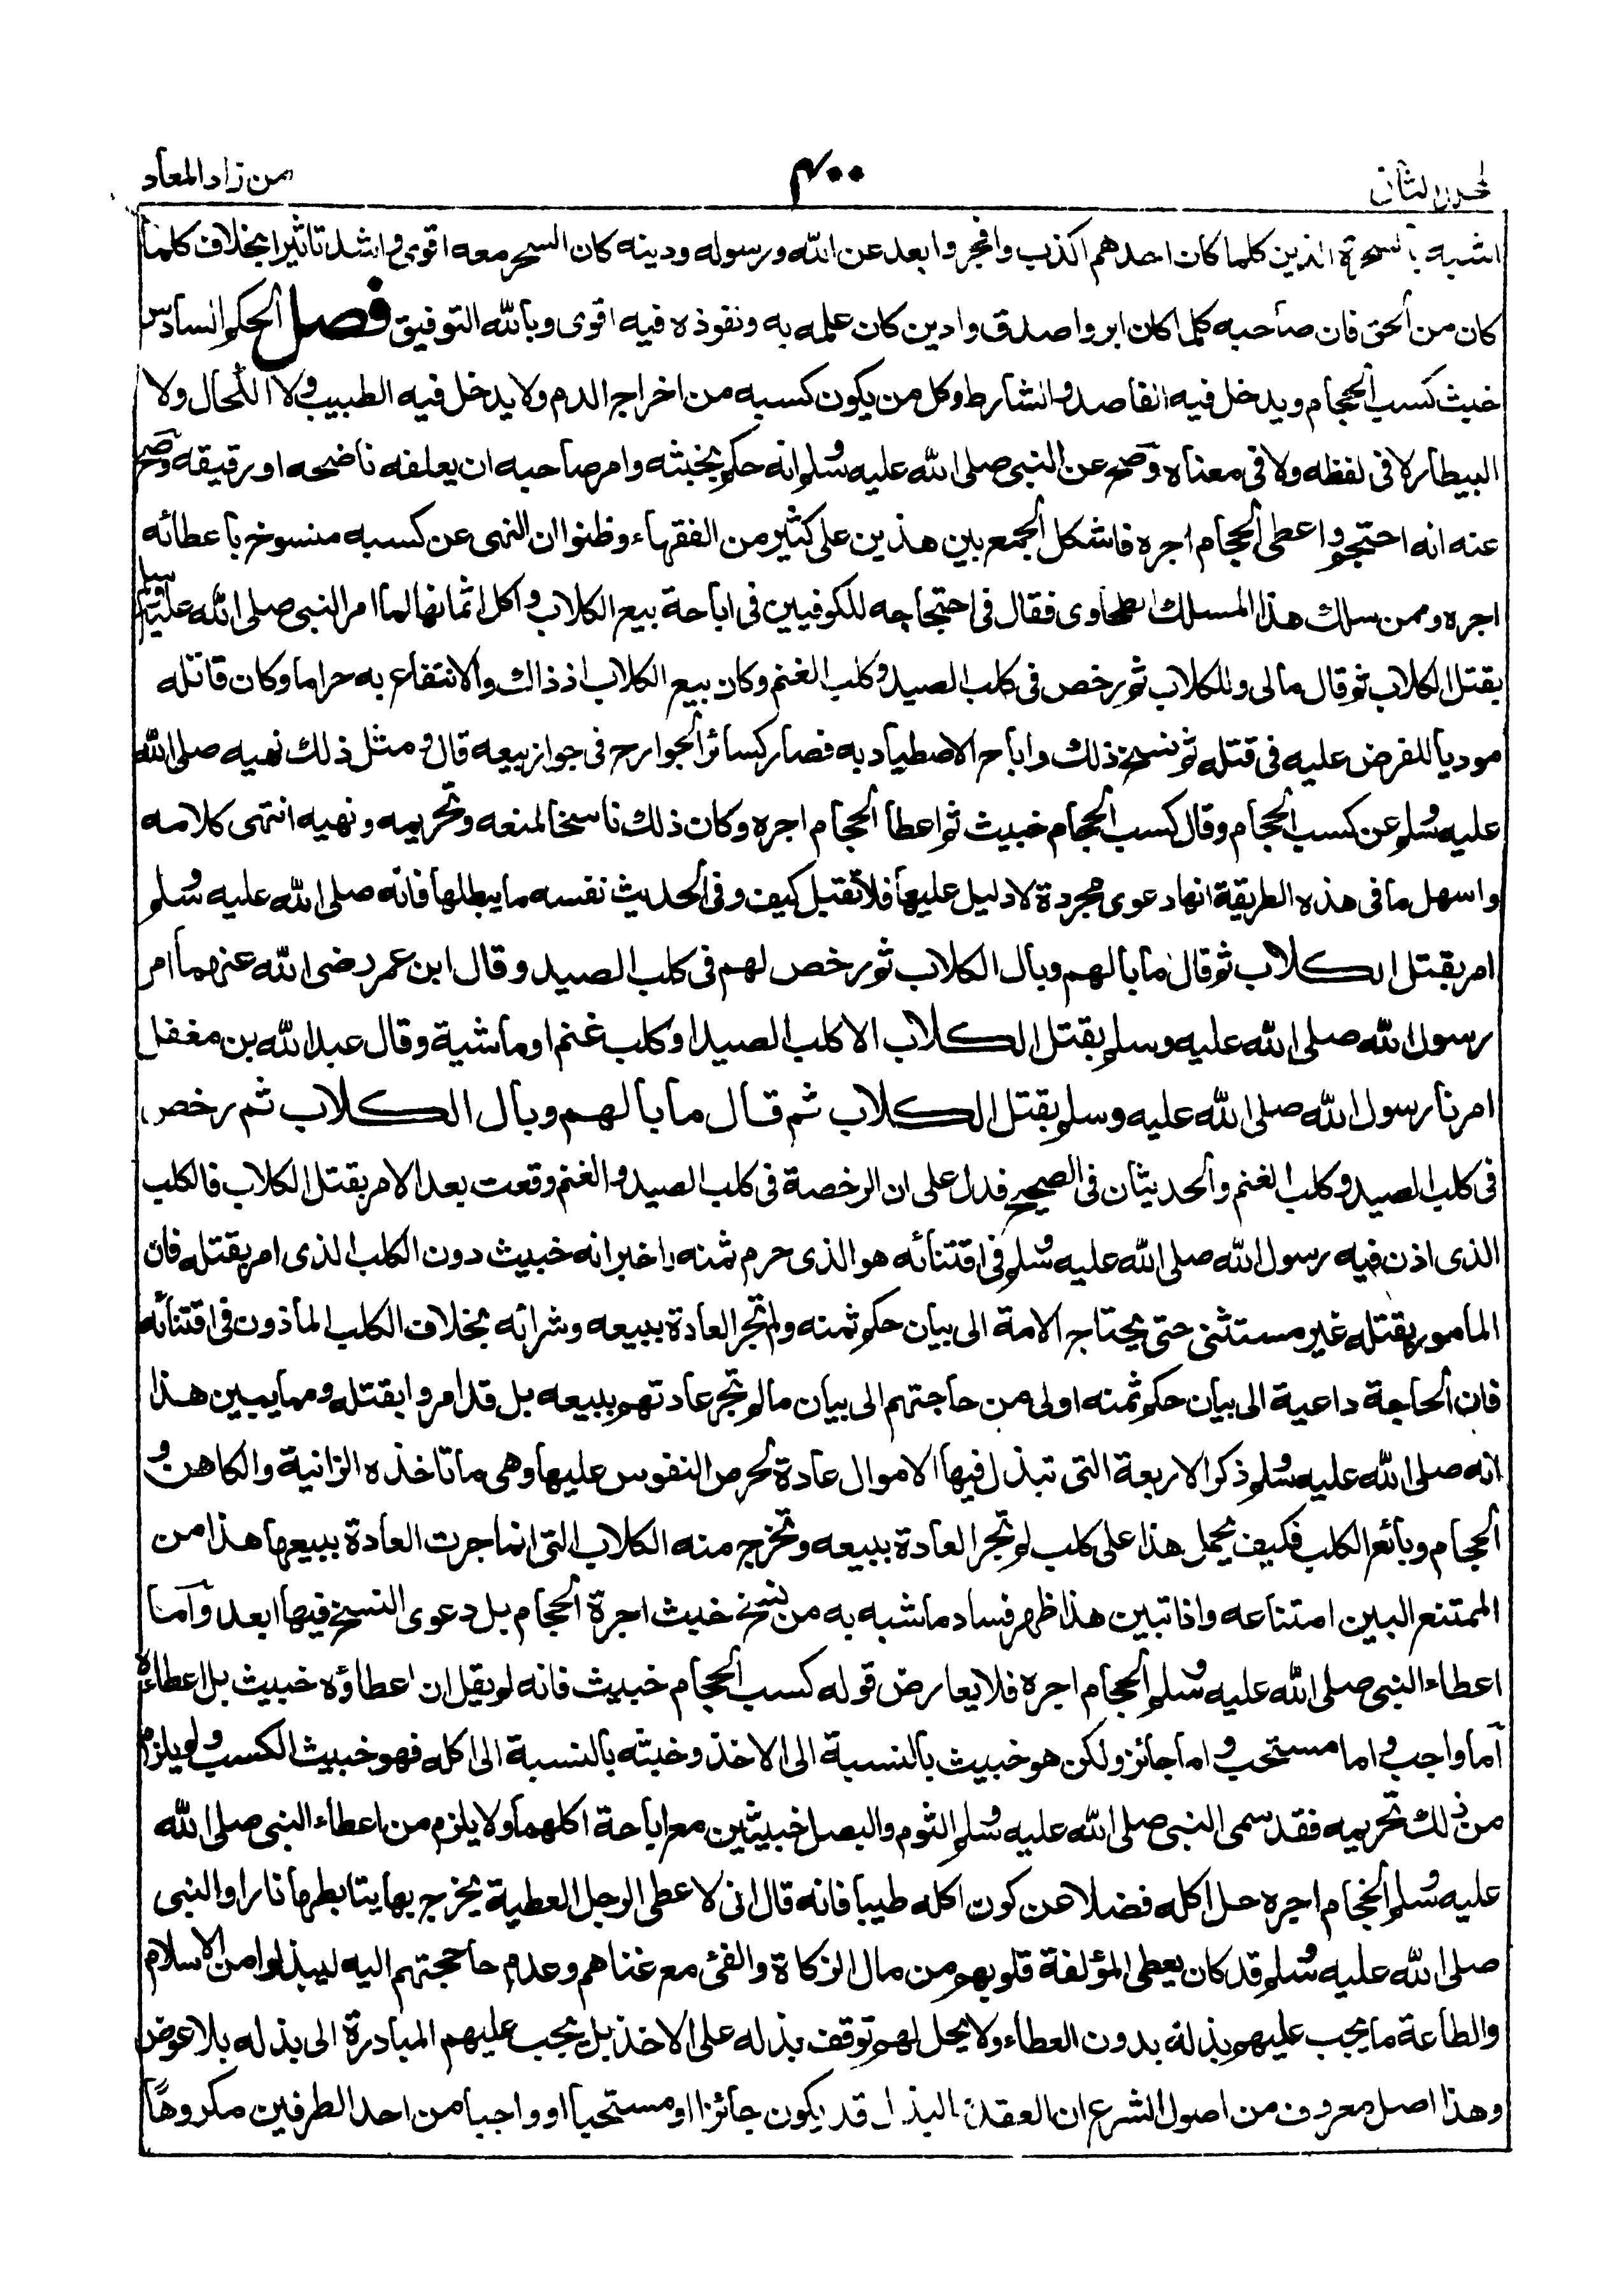 الجزء الثانى
٤٠٠
من زاد المعاد
اشبه بالسحرة الذين كلما كان احدهم اكذب وافجر وابعد عن الله ورسوله ودينه كان السحر معه اقوى واشد تاثيرا بخلاف كلما
كان من الحق فان صاحبه كلما كان ابر واصدق وادين كان علمه به ونفوذه فيه اقوى وبالله التوفيق فصل الحكم السادس
خبث كسب الحجام ويدخل فيه الفاصد والشارط وكل من يكون كسبه من اخراج الدم ولا يدخل فيه الطبيب ولا الكحال ولا
البيطار لا فى لفظه ولا فى معناه وصح عن النبى صلى الله عليه وسلم انه حكم بخبثه وامر صاحبه ان يعلفه ناضحه او رقيقه وصح
عنه انه احتجم واعطى الحجام اجره فاشكل الجمع بين هذين على كثير من الفقهاء وظنوا ان النهى عن كسبه منسوخ باعطائه
اجره وممن سلك هذا المسلك الطحاوى فقال فى احتجاجه للكوفيين فى اباحة بيع الكلاب واكل اثمانها لما امر النبى صلى الله عليه وسلم
بقتل الكلاب ثم قال مالى وللكلاب ثم رخص فى كلب الصيد وكلب الغنم وكان بيع الكلاب اذ ذاك والانتفاع به حراما وكان قاتله
موديا للفرض عليه فى قتله ثم نسخ ذلك واباح الاصطياد به فصار كسائر الجوارح فى جواز بيعه قال ومثل ذلك نهيه صلى الله
عليه وسلم عن كسب الحجام وقال كسب الحجام خبيث ثم اعطا الحجام اجره وكان ذلك ناسخا لمنعه وتحريمه ونهيه انتهى كلامه
واسهل ما فى هذه الطريقة انها دعوى مجردة لا دليل عليها فلا تقبل كيف وفى الحديث نفسه ما يبطلها فانه صلى الله عليه وسلم
امر بقتل الكلاب ثم قال ما بالهم وبال الكلاب ثم رخص لهم فى كلب الصيد وقال ابن عمر رضى الله عنهما امر
رسول الله صلى الله عليه وسلم بقتل الكلاب الا كلب الصيد او كلب غنم او ماشية وقال عبد الله بن مغفل
امرنا رسول الله صلى الله عليه وسلم بقتل الكلاب ثم قال ما بالهم وبال الكلاب ثم رخص
فى كلب الصيد وكلب الغنم والحديثان فى الصحيح فدل على ان الرخصة فى كلب الصيد والغنم وقعت بعد الامر بقتل الكلاب فالكلب
الذى اذن فيه رسول الله صلى الله عليه وسلم فى اقتنائه هو الذى حرم ثمنه واخبر انه خبيث دون الكلب الذى امر بقتله فان
المامور بقتله غير مستثنى حتى يحتاج الامة الى بيان حكم ثمنه ولم تجر العادة ببيعه وشرائه بخلاف الكلب الماذون فى اقتنائه
فان الحاجة داعية الى بيان حكم ثمنه اولى من حاجتهم الى بيان مالم تجر عادتهم ببيعه بل قد امروا بقتله ومما يبين هذا
انه صلى الله عليه وسلم ذكر الاربعة التى تبذل فيها الاموال عادة لحرص النفوس عليها وهى ما تاخذه الزانية والكاهن و
الحجام وبائع الكلب فكيف يحمل هذا على كلب لم تجر العادة ببيعه وتخرج منه الكلاب التى انما جرت العادة ببيعها هذا من
الممتنع البين امتناعه واذا تبين هذا ظهر فساد ما شبه به من نسخ خبث اجرة الحجام بل دعوى النسخ فيها ابعد واما
اعطاء النبى صلى الله عليه وسلم الحجام اجره فلا يعارض قوله كسب الحجام خبيث فانه لم يقل ان اعطاؤه خبيث بل اعطاءه
اما واجب واما مستحب واما جائز ولكن هو خبيث بالنسبة الى الاخذ وخبثه بالنسبة الى اكله فهو خبيث الكسب ولم يلزم
من ذلك تحريمه فقد سمى النبى صلى الله عليه وسلم الثوم والبصل خبيثين مع اباحة اكلهما ولا يلزم من اعطاء النبى صلى الله
عليه وسلم الحجام اجره حل اكله فضلا عن كون اكله طيبا فانه قال انى لاعطى الرجل العطية يخرج بها يتابطها نارا والنبى
صلى الله عليه وسلم قد كان يعطى المؤلفة قلوبهم من مال الزكاة والفئ مع غناهم وعدم حاجتهم اليه ليبذلوا من الاسلام
والطاعة ما يجب عليهم بذله بدون العطاء ولا يحل لهم توقف بذله على الاخذ بل يجب عليهم المبادرة الى بذله بلا عوض
وهذا اصل معروف من اصول الشرع ان العقد والبذل قد يكون جائزا او مستحبا او واجبا من احد الطرفين مكروها